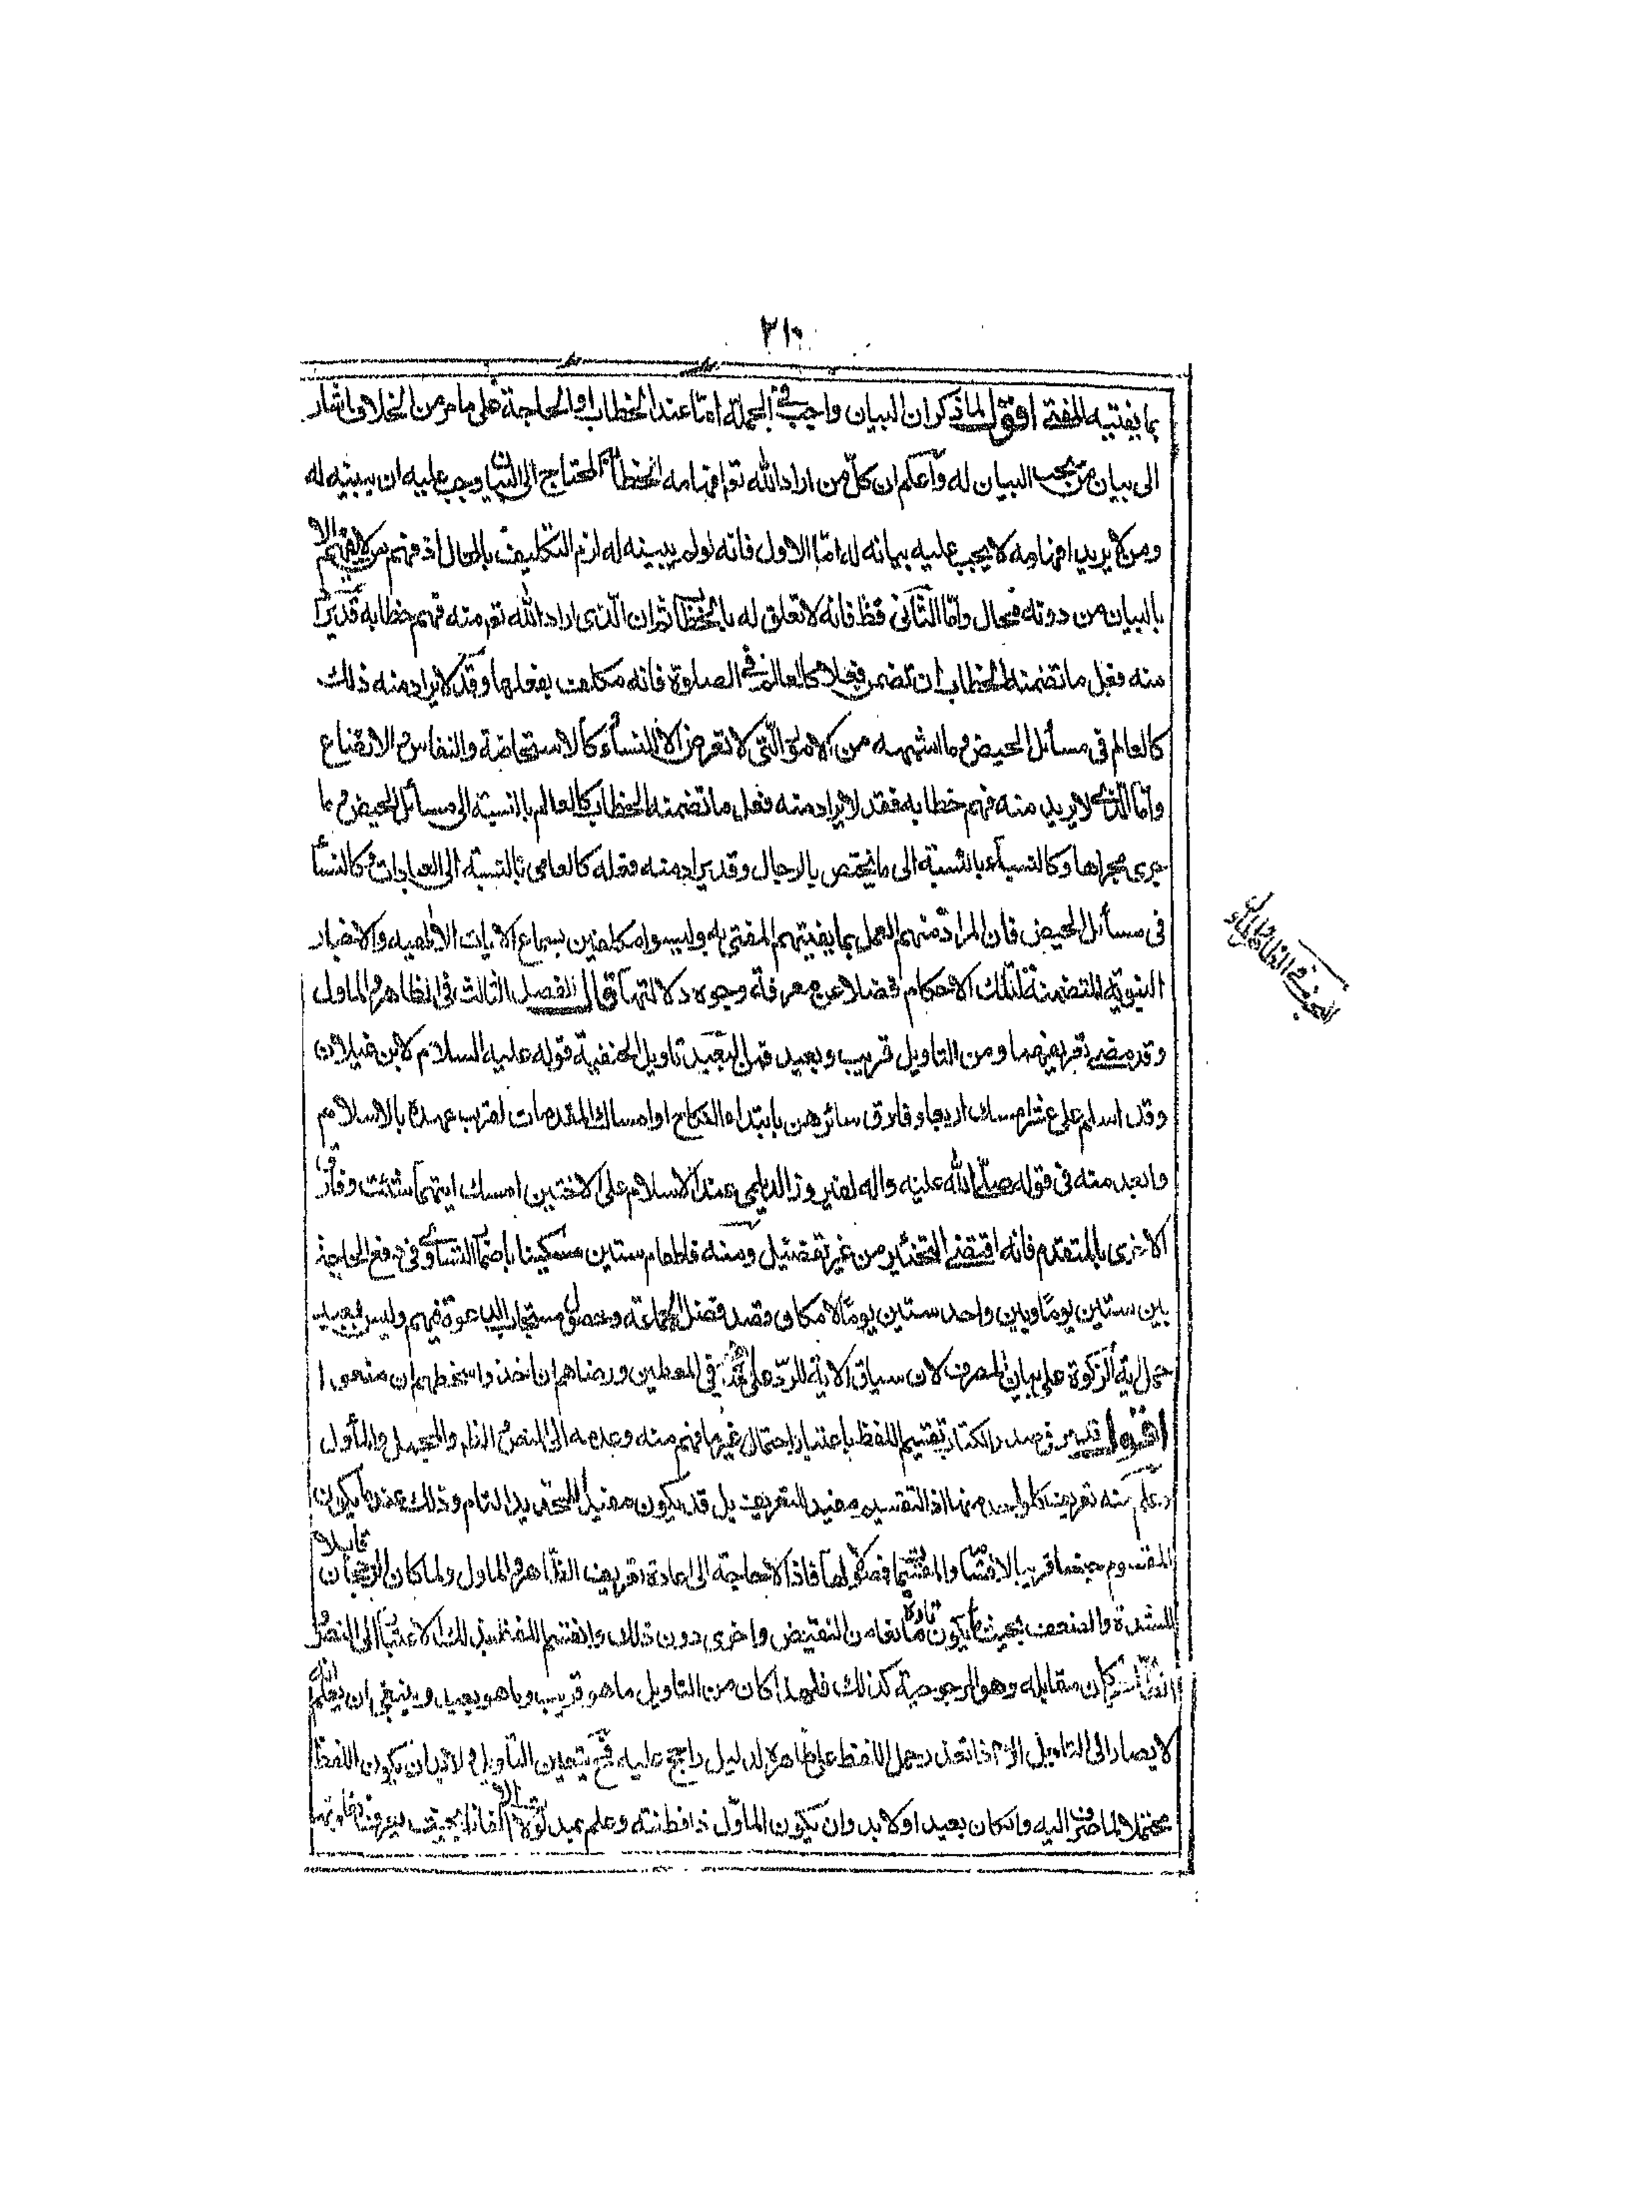 ٢١٠
بما يفتيه المفتى اقول لما ذكر ان البيان واجب فى الجملة اما عند الخطاب او الحاجة على ما مر من الخلاف اشار
الى بيان من يجب البيان له واعلم ان كل من اراد الله تع افهامه الخطاب المحتاج الى البيان وجب عليه ان يبينه له
ومن لا يريد افهامه لا يجب عليه بيانه له اما الاول فانه لو لم يبينه له لزم التكليف بالمحال اذ فهم من لا يفهم الا
بالبيان من دونه محال واما الثانى فظ فانه لا تعلق له بالخطاب ثم ان الذى اراد الله تع منه فهم خطابه قد يراد
منه فعل ما تضمنه الخطاب ان تضمن فعلا كالعالم فى الصلوة فانه مكلف بفعلها وقد لا يراد منه ذلك
كالعالم فى مسائل الحيض وما اشبهه من الامور التى لا تعرض الا للنساء كالاستحاضة والنفاس والارضاع
واما الذى لا يريد منه فهم خطابه فقد لا يراد منه فعل ما تضمنه الخطاب كالعالم بالنسبة الى مسائل الحيض وما
جرى مجراها وكالنساء بالنسبة الى ما يختص بالرجال وقد يراد منه فعله كالعامى بالنسبة الى العبادات وكالنساء
فى مسائل الحيض فان المراد منهم العمل بما يفتيهم المفتى به وليسوا مكلفين بسماع الايات الالهيه والاخبار
النبوية المتضمنة لتلك الاحكام فضلا عن معرفة وجوه دلالتها قال الفصل الثالث فى الظاهر والماول
وقد مضى تعريفهما ومن التاويل قريب وبعيد فمن البعيد تاويل الحنفية قوله عليه السلام لابن غيلان
وقد اسلم على عشر امسك اربعا وفارق سائرهن بابتداء النكاح او امساك المقدمات لقرب عهده بالاسلام
وابعد منه فى قوله صلى الله عليه واله لفيروز الديلمى عند الاسلام على الاختين امسك ايتهما شئت وفارق
الاخرى بالمتقدم فانه اقتضى التخيير من غير تفضيل ومنه فاطعام ستين مسكينا باضمار التساوى فى دفع الحاجة
بين ستين يوما وبين واحد ستين يوما لامكان قصد فضل الجماعة وحصول مستجاب الدعوة فيهم وليس ببعيد
حمل اية الزكوة على بيان المصرف لان سياق الاية للرد على فى المعطين ورضاهم ان اخذوا وسخطهم ان منعوا
اقول قد مر فى صدر الكتاب تقسيم اللفظ باعتبار احتمال غير ما فهم منه وعدمه الى النص والظاهر والمجمل والماول
وعلم منه تعريف كل واحد منها اذ التقسيم مفيد التعريف بل قد يكون مفيدا للتحديد التام وذلك عندما يكون
المقسوم جنسا قريبا للاقسام والمقسم فصولا لها فاذا لا حاجة الى اعادة تعريف الظاهر والماول ولما كان الرجحان قابلا
للشدة والضعف بحيث يكون تارة مانعا من النقيض واخرى دون ذلك وانقسم اللفظ بذلك الاعتبار الى النص و
الظاهر كان مقابله وهو المرجوحية كذلك فلهذا كان من التاويل ما هو قريب وما هو بعيد وينبغى ان يعلم انه
لا يصار الى التاويل الا اذا تعذر حمل اللفظ على ظاهره لدليل راجح عليه فح يتعين التاويل ولا بد ان يكون اللفظ
محتملا لما صرف اليه وان كان بعيدا ولا بد وان يكون الماول ذا فطنة وعلم بمدلولات الالفاظ بحيث يعرف
البحث فى الظاهر والماول